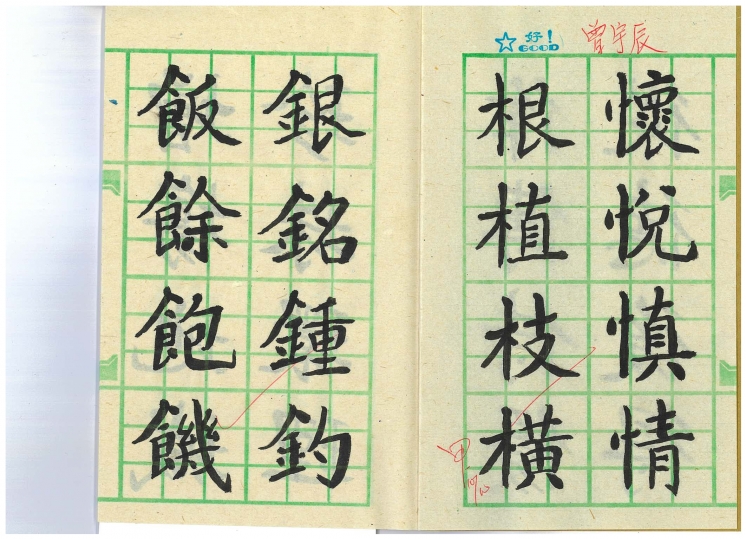 好!
GOOD
曾宇辰
懷悅慎情
根植枝橫
銀銘鍾釣
飯餘飽饑
甲
10/10